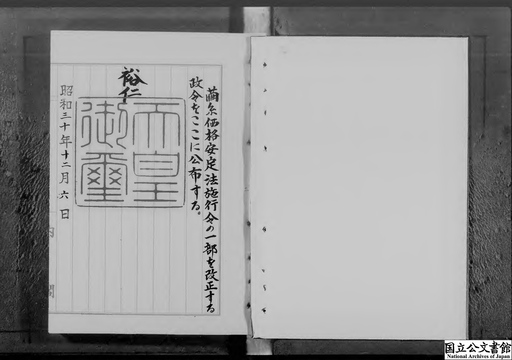 繭糸価格安定法施行令の一部を改正する
政令をここに公布する。
裕仁
天皇
御璽
昭和三十年十二月六日
内
閣
国立公文書館
National Archives of Japan